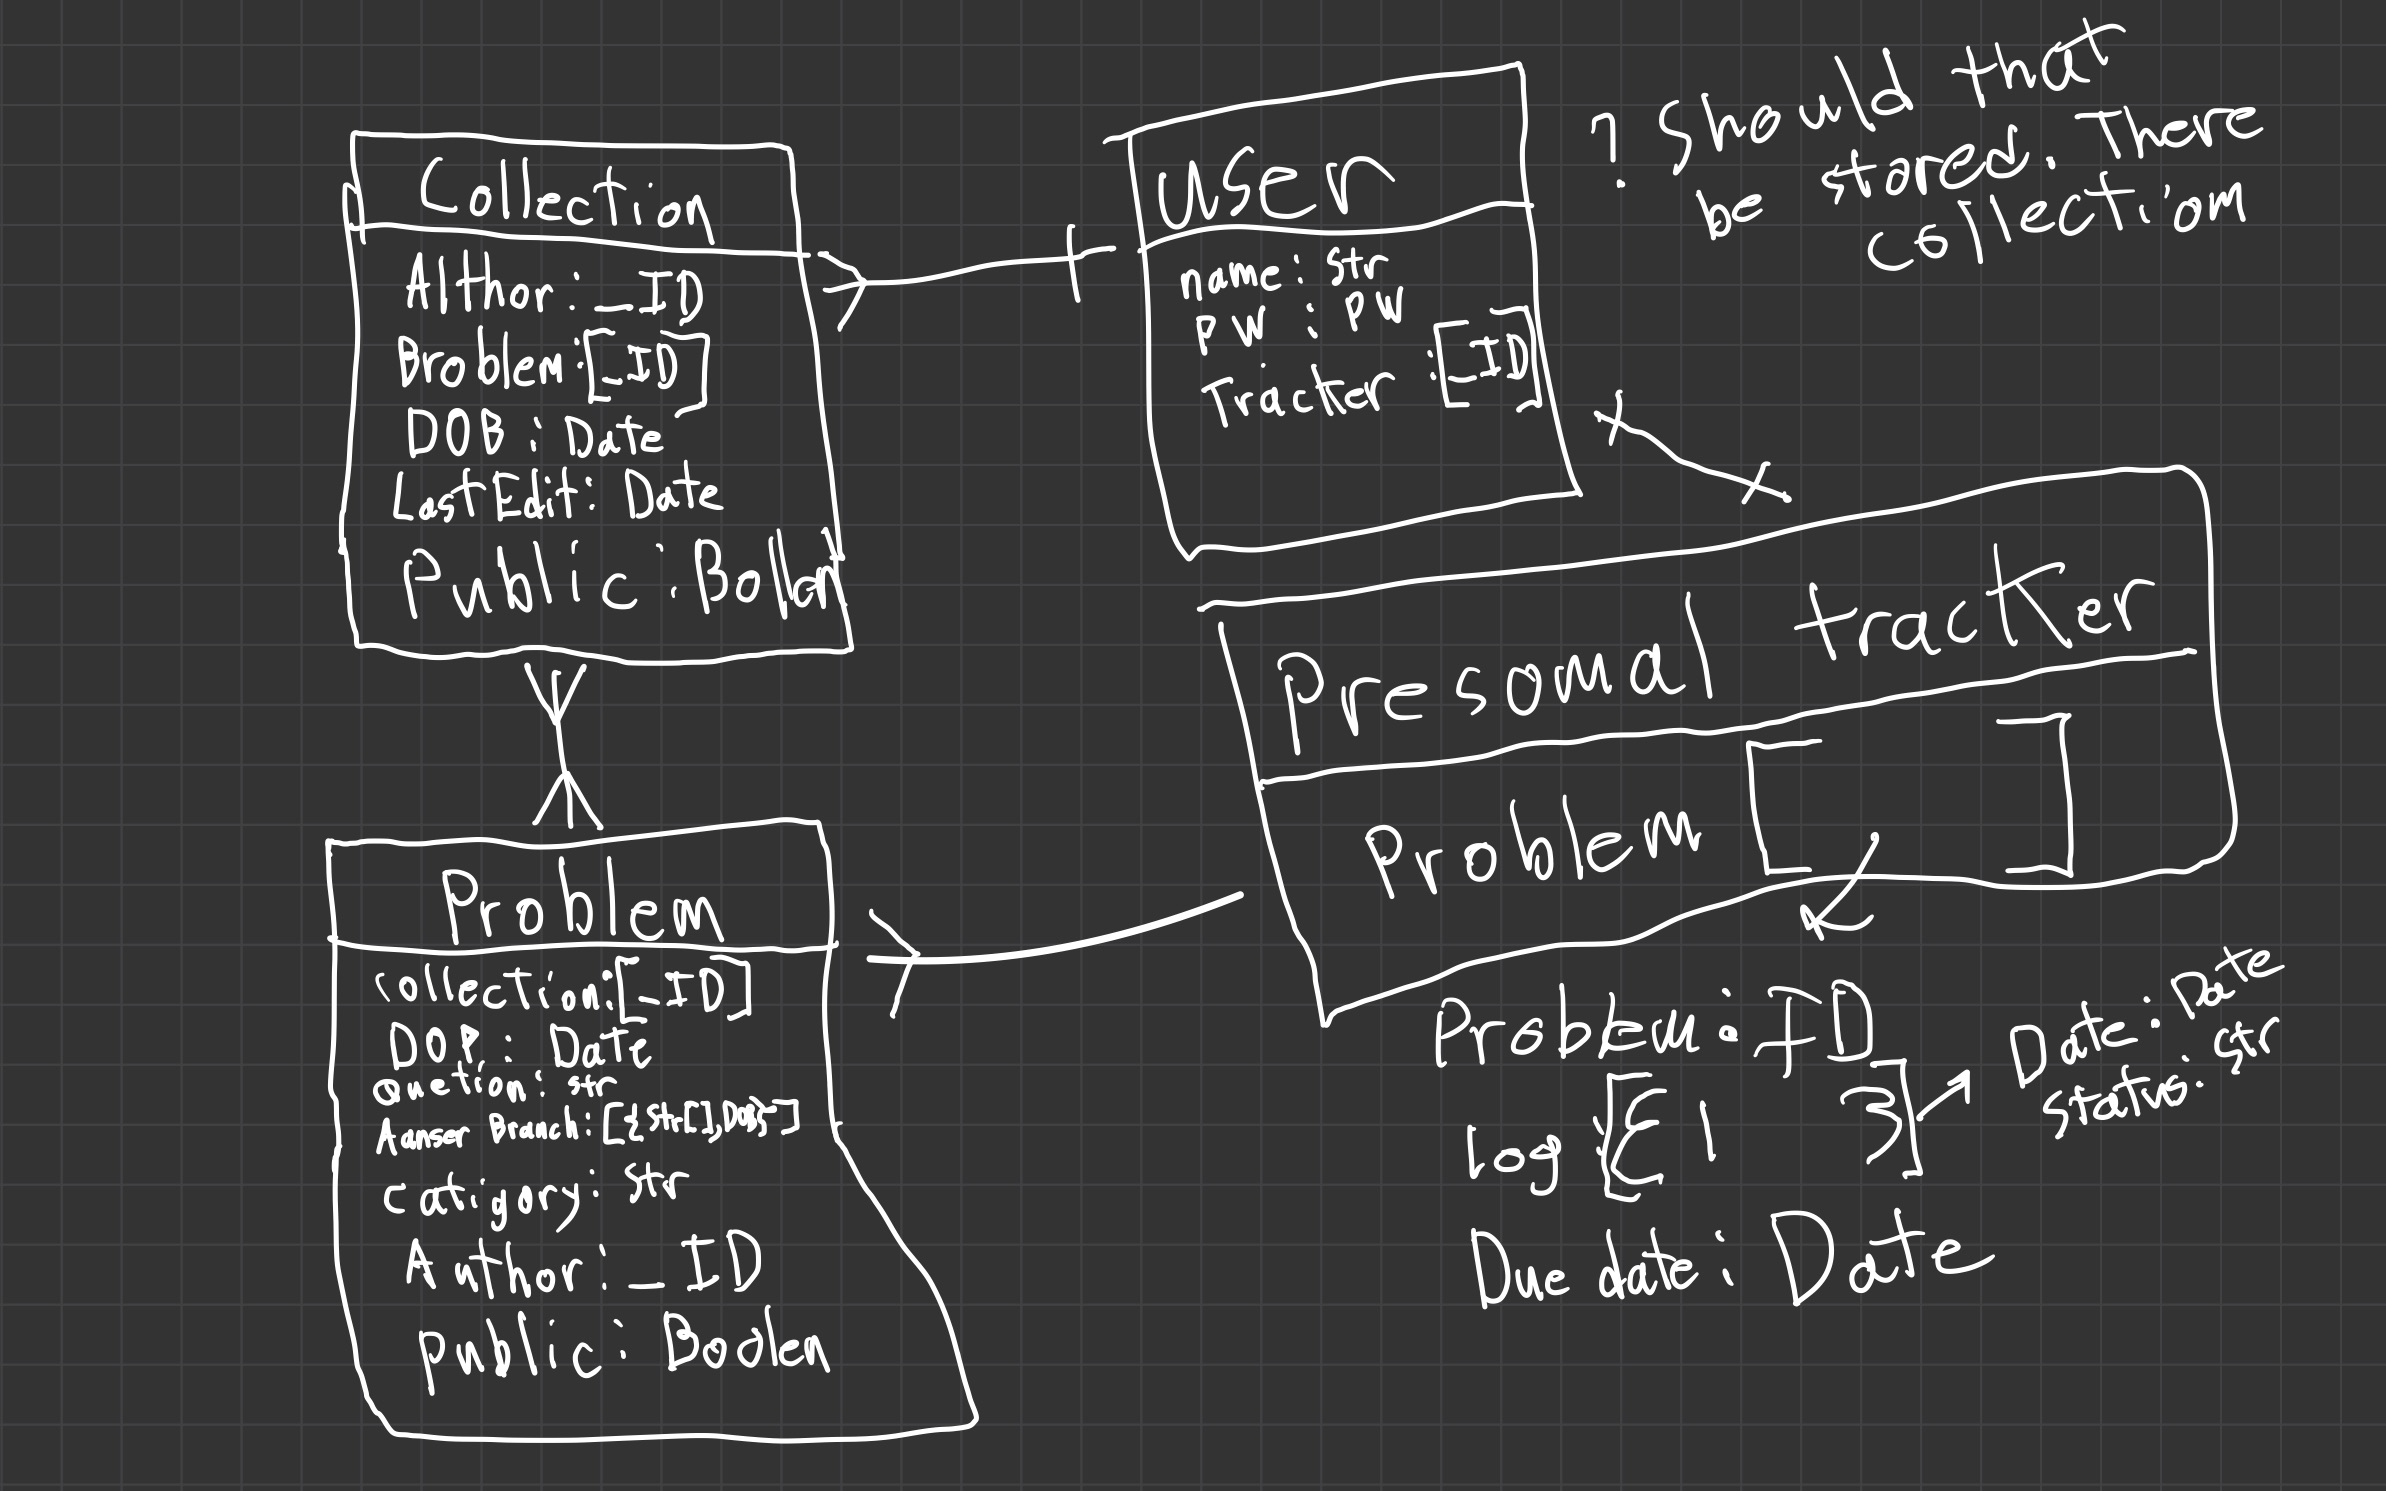 Collection
Althor : _ID
Broblem : [_ID]
DOB : Date
LastEdit : Date
Public : Bollen
User
name : str
PW : PW
Tracker : [_ID]
? Should that
be stored. There
collection
Presomal tracker
Problem [ ]
Problem : ID
Log : [{ | }]
Due date : Date
Date : Date
Status : str
Problem
Collection : [_ID]
DOP : Date
Quetion : str
Aanser Branch : [{str[], }]
Catigory : str
Author : _ID
Public : Boolen